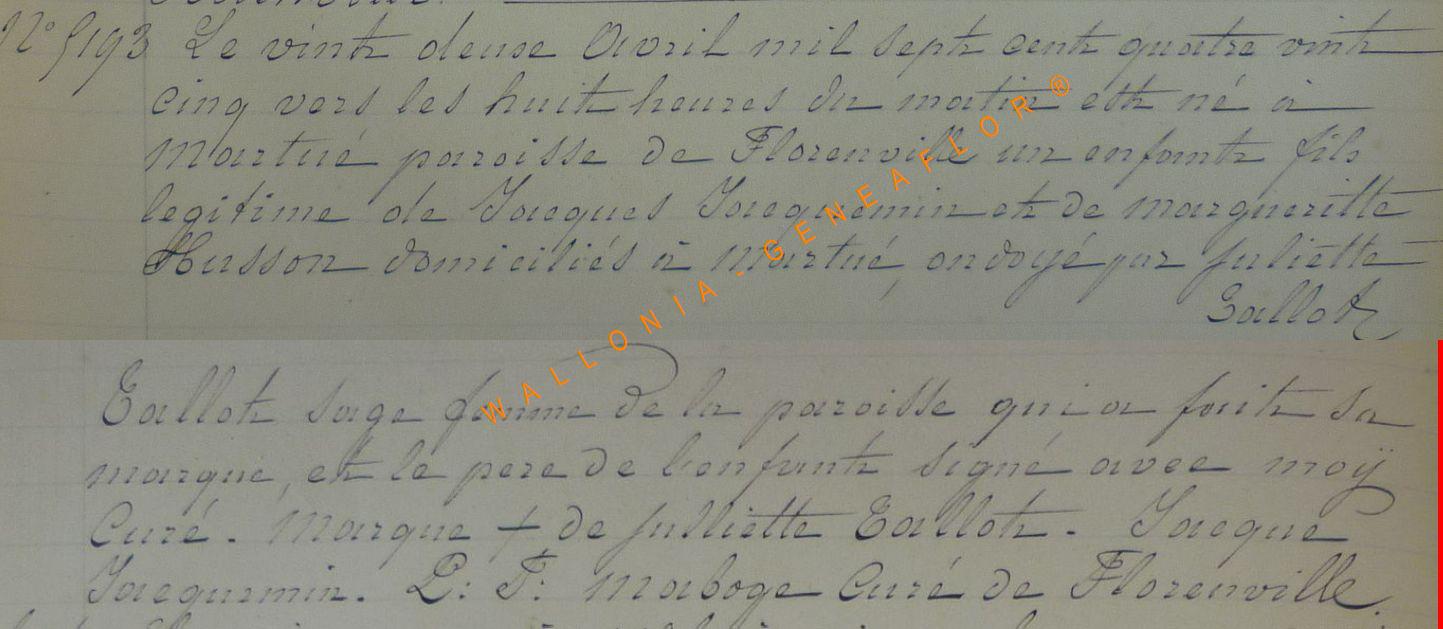 N° 5193 Le vint deuse Avril mil sept cent quatre vint
cinq vers les huit heures du matin est né à
Martué paroisse de Florenville un enfant fils
legitime de Jacques Jacquemin et de margueritte
Husson domiciliés à Martué, ondoyé par Juliette
Tallot
Tallot sage femme de la paroisse qui a fait sa
marque, et le pere de l'enfant signé avec moÿ
Curé. Marque + de Julliette Tallot. Jacque
Jacquemin. P: F: Maboge Curé de Florenville.
WALLONIA - GENEAFLOR ®